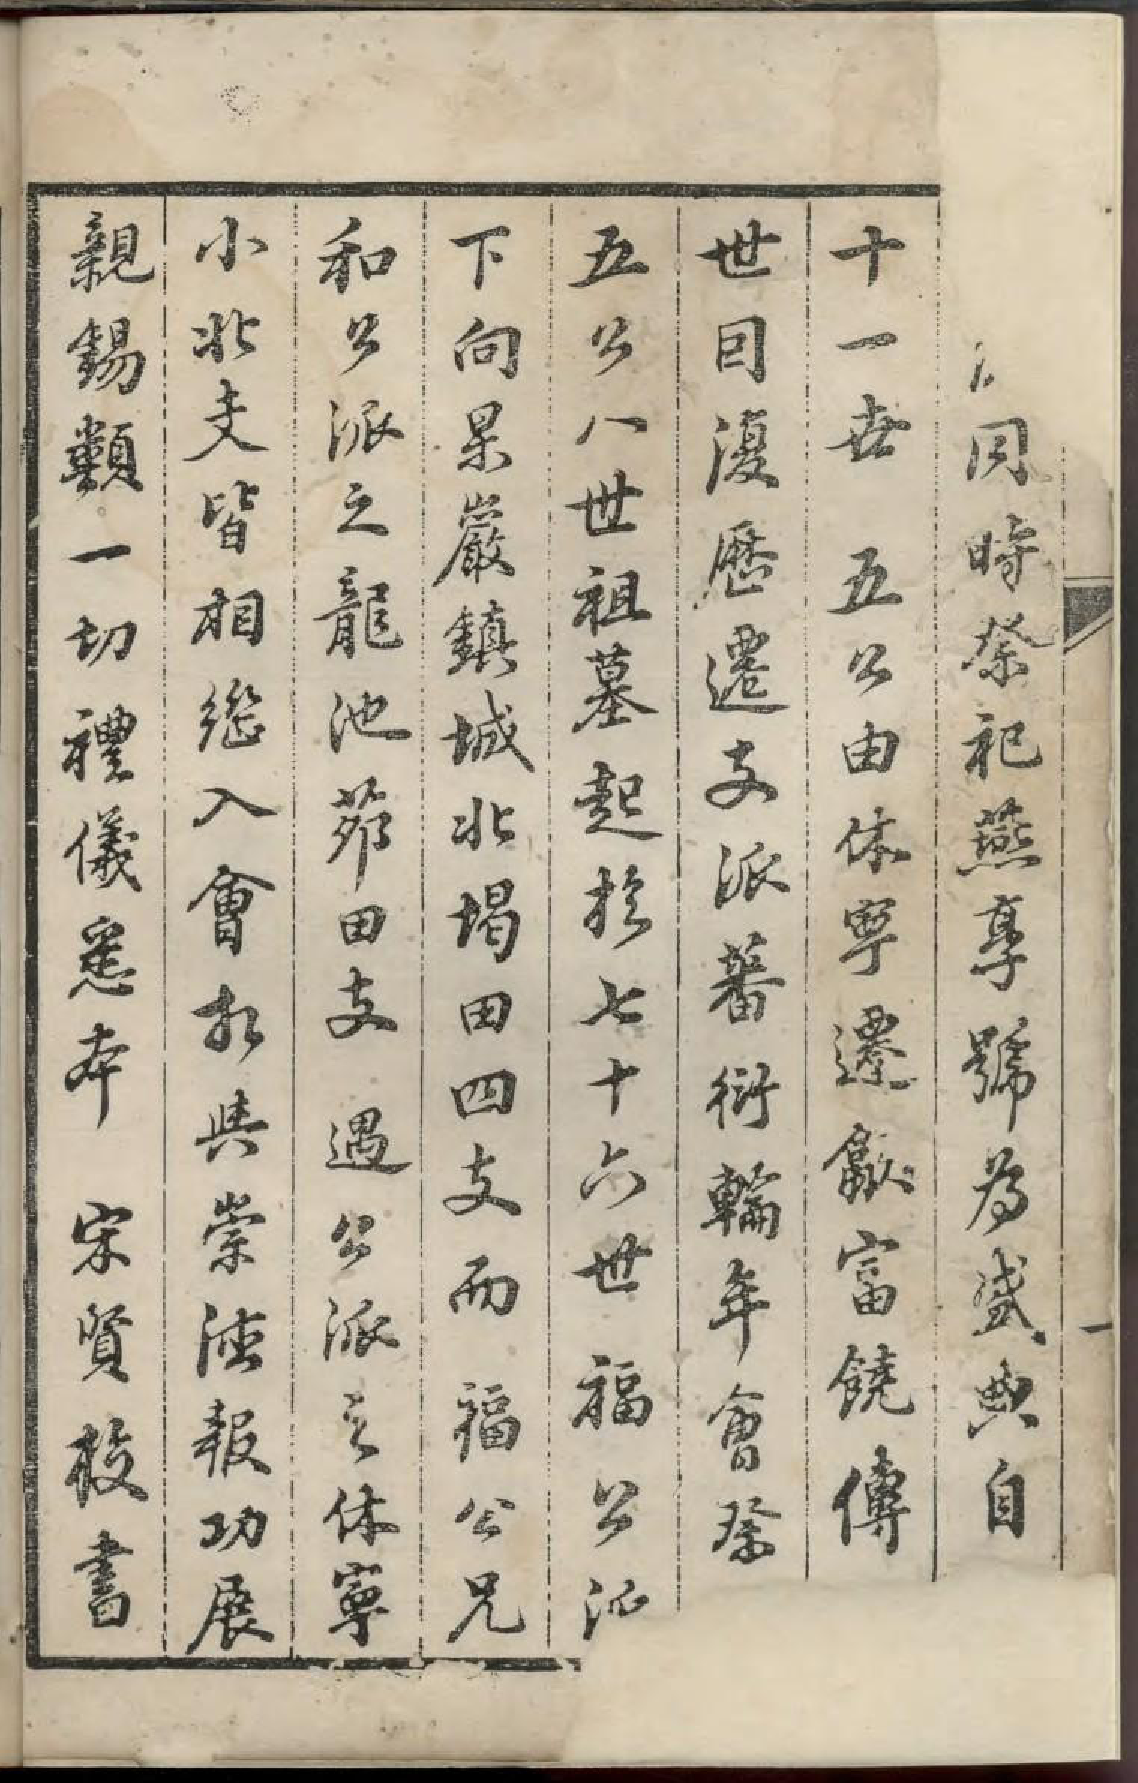 同時祭祀燕享號為盛典自
十一世 五公由休寧遷歙富饒傳
世囘復歷遷支派蕃衍輪年會祭
五公八世祖墓起於七十六世福公派
下向杲巖鎮城北堨田四支而 福公兄
和公派之龍池茆田支 遇公派之休寧
小北支皆相繼入會於典崇德報功展
親錫類一切禮儀悉本 宋賢校書